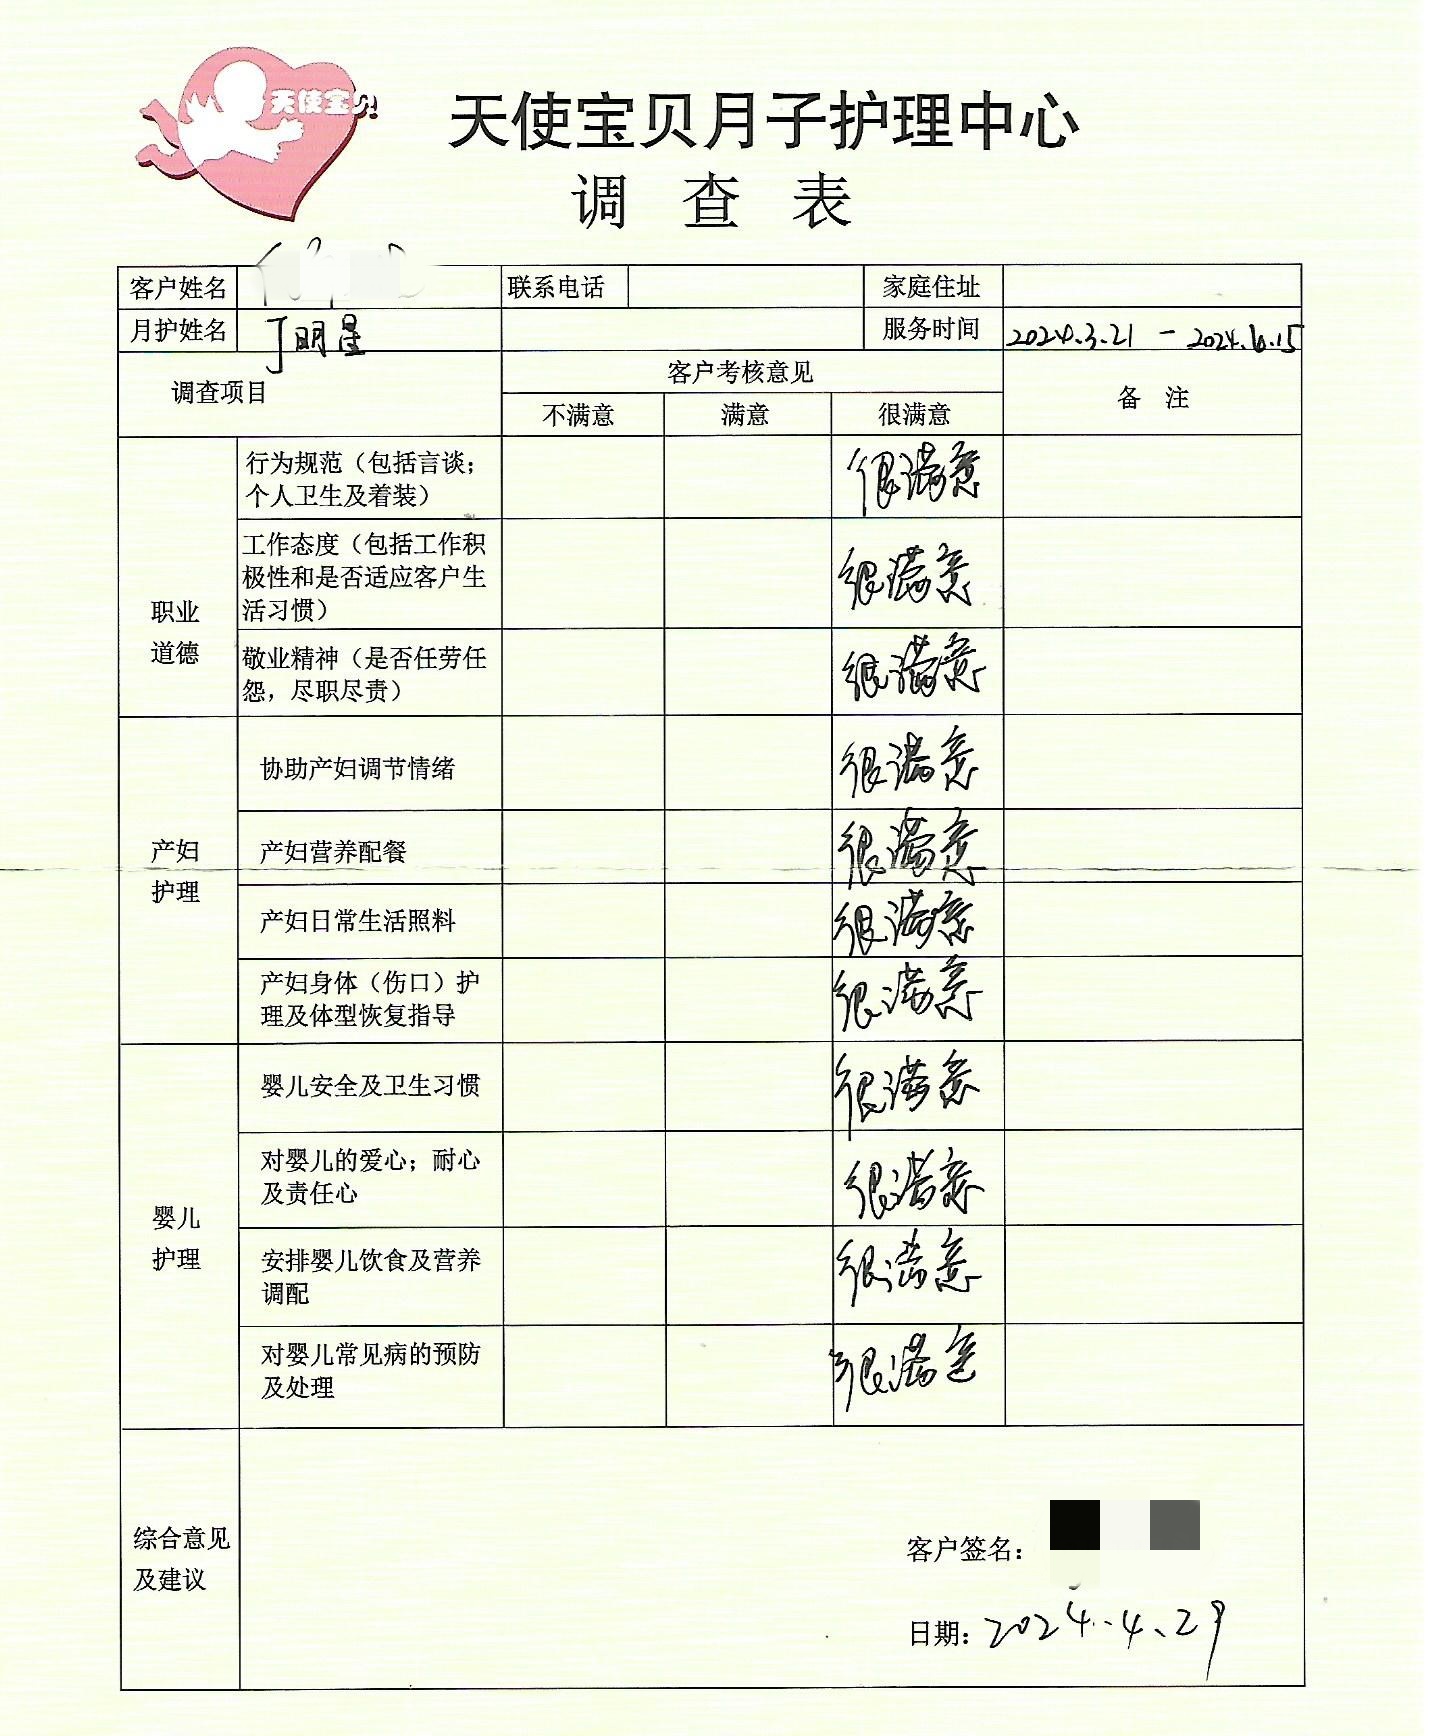 天使宝贝
天使宝贝月子护理中心
调查表
客户姓名 联系电话 家庭住址
月护姓名 丁明星 服务时间 2024.3.21 - 2024.6.15
调查项目 客户考核意见 备注
不满意 满意 很满意
职业
道德
行为规范（包括言谈；
个人卫生及着装） 很满意
工作态度（包括工作积
极性和是否适应客户生
活习惯） 很满意
敬业精神（是否任劳任
怨，尽职尽责） 很满意
产妇
护理
协助产妇调节情绪 很满意
产妇营养配餐 很满意
产妇日常生活照料 很满意
产妇身体（伤口）护
理及体型恢复指导 很满意
婴儿
护理
婴儿安全及卫生习惯 很满意
对婴儿的爱心；耐心
及责任心 很满意
安排婴儿饮食及营养
调配 很满意
对婴儿常见病的预防
及处理 很满意
综合意见
及建议
客户签名：
日期：2024.4.29